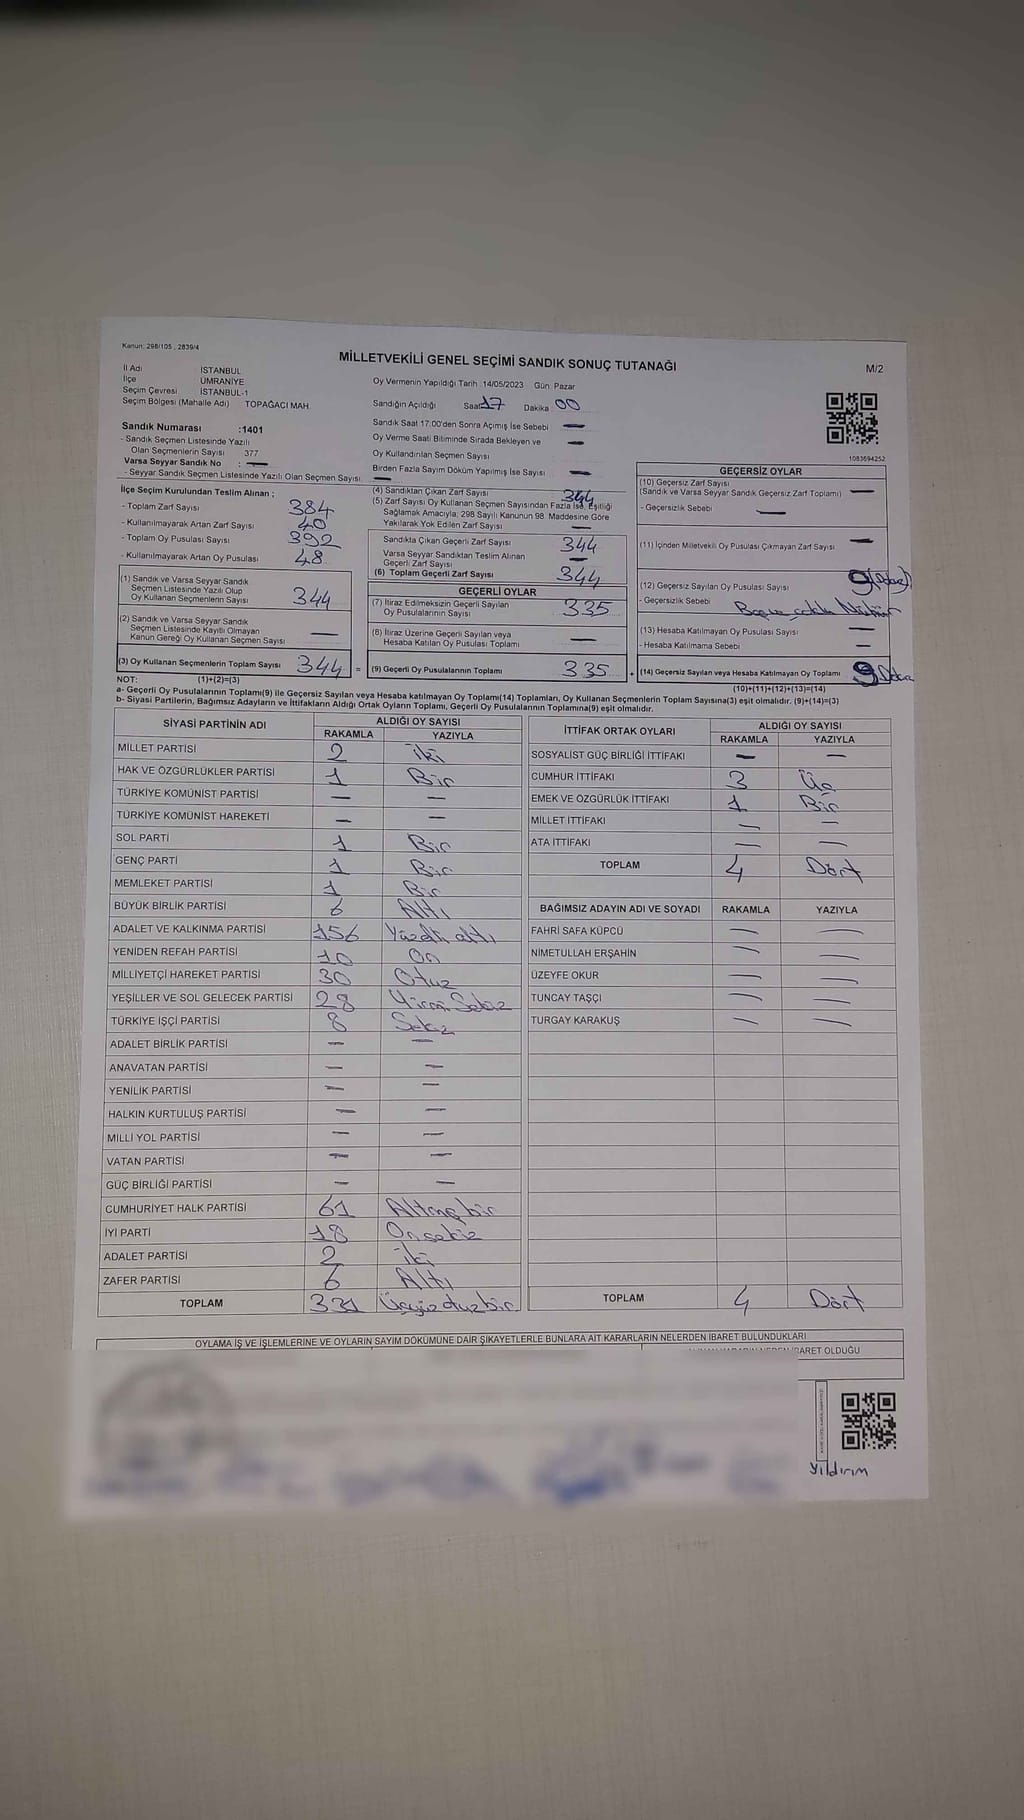 Kanun: 298/105 , 2839/4
MİLLETVEKİLİ GENEL SEÇİMİ SANDIK SONUÇ TUTANAĞI
M/2
İl Adı İSTANBUL
İlçe ÜMRANİYE
Seçim Çevresi İSTANBUL-1
Seçim Bölgesi (Mahalle Adı) TOPAĞACI MAH.
Oy Vermenin Yapıldığı Tarih :14/05/2023 Gün :Pazar
Sandığın Açıldığı Saat 17 Dakika 00
Sandık Saat 17:00'den Sonra Açımış İse Sebebi —
Oy Verme Saati Bitiminde Sırada Bekleyen ve —
Oy Kullandırılan Seçmen Sayısı
Birden Fazla Sayım Döküm Yapılmış İse Sayısı —
1083694252
Sandık Numarası :1401
- Sandık Seçmen Listesinde Yazılı
Olan Seçmenlerin Sayısı 377
Varsa Seyyar Sandık No : —
- Seyyar Sandık Seçmen Listesinde Yazılı Olan Seçmen Sayısı —
İlçe Seçim Kurulundan Teslim Alınan ;
- Toplam Zarf Sayısı 384
- Kullanılmayarak Artan Zarf Sayısı 40
- Toplam Oy Pusulası Sayısı 392
- Kullanılmayarak Artan Oy Pusulası 48
(1) Sandık ve Varsa Seyyar Sandık
Seçmen Listesinde Yazılı Olup
Oy Kullanan Seçmenlerin Sayısı 344
(2) Sandık ve Varsa Seyyar Sandık
Seçmen Listesinde Kayıtlı Olmayan
Kanun Gereği Oy Kullanan Seçmen Sayısı —
(3) Oy Kullanan Seçmenlerin Toplam Sayısı 344 =
(4) Sandıktan Çıkan Zarf Sayısı 344
(5) Zarf Sayısı Oy Kullanan Seçmen Sayısından Fazla İse, Eşitliği
Sağlamak Amacıyla; 298 Sayılı Kanunun 98. Maddesine Göre
Yakılarak Yok Edilen Zarf Sayısı —
Sandıkta Çıkan Geçerli Zarf Sayısı 344
Varsa Seyyar Sandıktan Teslim Alınan
Geçerli Zarf Sayısı —
(6) Toplam Geçerli Zarf Sayısı 344
GEÇERLİ OYLAR
(7) İtiraz Edilmeksizin Geçerli Sayılan
Oy Pusulalarının Sayısı 335
(8) İtiraz Üzerine Geçerli Sayılan veya
Hesaba Katılan Oy Pusulaları Toplamı —
(9) Geçerli Oy Pusulalarının Toplamı 335 +
GEÇERSİZ OYLAR
(10) Geçersiz Zarf Sayısı
(Sandık ve Varsa Seyyar Sandık Geçersiz Zarf Toplamı) —
- Geçersizlik Sebebi —
(11) İçinden Milletvekili Oy Pusulası Çıkmayan Zarf Sayısı —
(12) Geçersiz Sayılan Oy Pusulası Sayısı 9
- Geçersizlik Sebebi
(13) Hesaba Katılmayan Oy Pusulası Sayısı —
- Hesaba Katılmama Sebebi —
(14) Geçersiz Sayılan veya Hesaba Katılmayan Oy Toplamı 9
NOT: (1)+(2)=(3)
(10)+(11)+(12)+(13)=(14)
a- Geçerli Oy Pusulalarının Toplamı(9) ile Geçersiz Sayılan veya Hesaba katılmayan Oy Toplam(14) Toplamları, Oy Kullanan Seçmenlerin Toplam Sayısına(3) eşit olmalıdır. (9)+(14)=(3)
b- Siyasi Partilerin, Bağımsız Adayların ve İttifakların Aldığı Ortak Oyların Toplamı, Geçerli Oy Pusulalarının Toplamına(9) eşit olmalıdır.
SİYASİ PARTİNİN ADI ALDIĞI OY SAYISI
RAKAMLA YAZIYLA
MİLLET PARTİSİ 2 İki
HAK VE ÖZGÜRLÜKLER PARTİSİ 1 Bir
TÜRKİYE KOMÜNİST PARTİSİ — —
TÜRKİYE KOMÜNİST HAREKETİ — —
SOL PARTİ 1 Bir
GENÇ PARTİ 1 Bir
MEMLEKET PARTİSİ 1 Bir
BÜYÜK BİRLİK PARTİSİ 6 Altı
ADALET VE KALKINMA PARTİSİ 156 Yüzelli altı
YENİDEN REFAH PARTİSİ 10 On
MİLLİYETÇİ HAREKET PARTİSİ 30 Otuz
YEŞİLLER VE SOL GELECEK PARTİSİ 28 Yirmi Sekiz
TÜRKİYE İŞÇİ PARTİSİ 8 Sekiz
ADALET BİRLİK PARTİSİ — —
ANAVATAN PARTİSİ — —
YENİLİK PARTİSİ — —
HALKIN KURTULUŞ PARTİSİ — —
MİLLİ YOL PARTİSİ — —
VATAN PARTİSİ — —
GÜÇ BİRLİĞİ PARTİSİ — —
CUMHURİYET HALK PARTİSİ 61 Altmış bir
İYİ PARTİ 18 Onsekiz
ADALET PARTİSİ 2 İki
ZAFER PARTİSİ 6 Altı
TOPLAM 331 Üçyüz otuz bir
İTTİFAK ORTAK OYLARI ALDIĞI OY SAYISI
RAKAMLA YAZIYLA
SOSYALİST GÜÇ BİRLİĞİ İTTİFAKI — —
CUMHUR İTTİFAKI 3 Üç
EMEK VE ÖZGÜRLÜK İTTİFAKI 1 Bir
MİLLET İTTİFAKI — —
ATA İTTİFAKI — —
TOPLAM 4 Dört
BAĞIMSIZ ADAYIN ADI VE SOYADI RAKAMLA YAZIYLA
FAHRİ SAFA KÜPCÜ — —
NİMETULLAH ERŞAHİN — —
ÜZEYFE OKUR — —
TUNCAY TAŞÇI — —
TURGAY KARAKUŞ — —
TOPLAM 4 Dört
OYLAMA İŞ VE İŞLEMLERİNE VE OYLARIN SAYIM DÖKÜMÜNE DAİR ŞİKAYETLERLE BUNLARA AİT KARARLARIN NELERDEN İBARET BULUNDUKLARI
İBARET OLDUĞU
Yıldırım